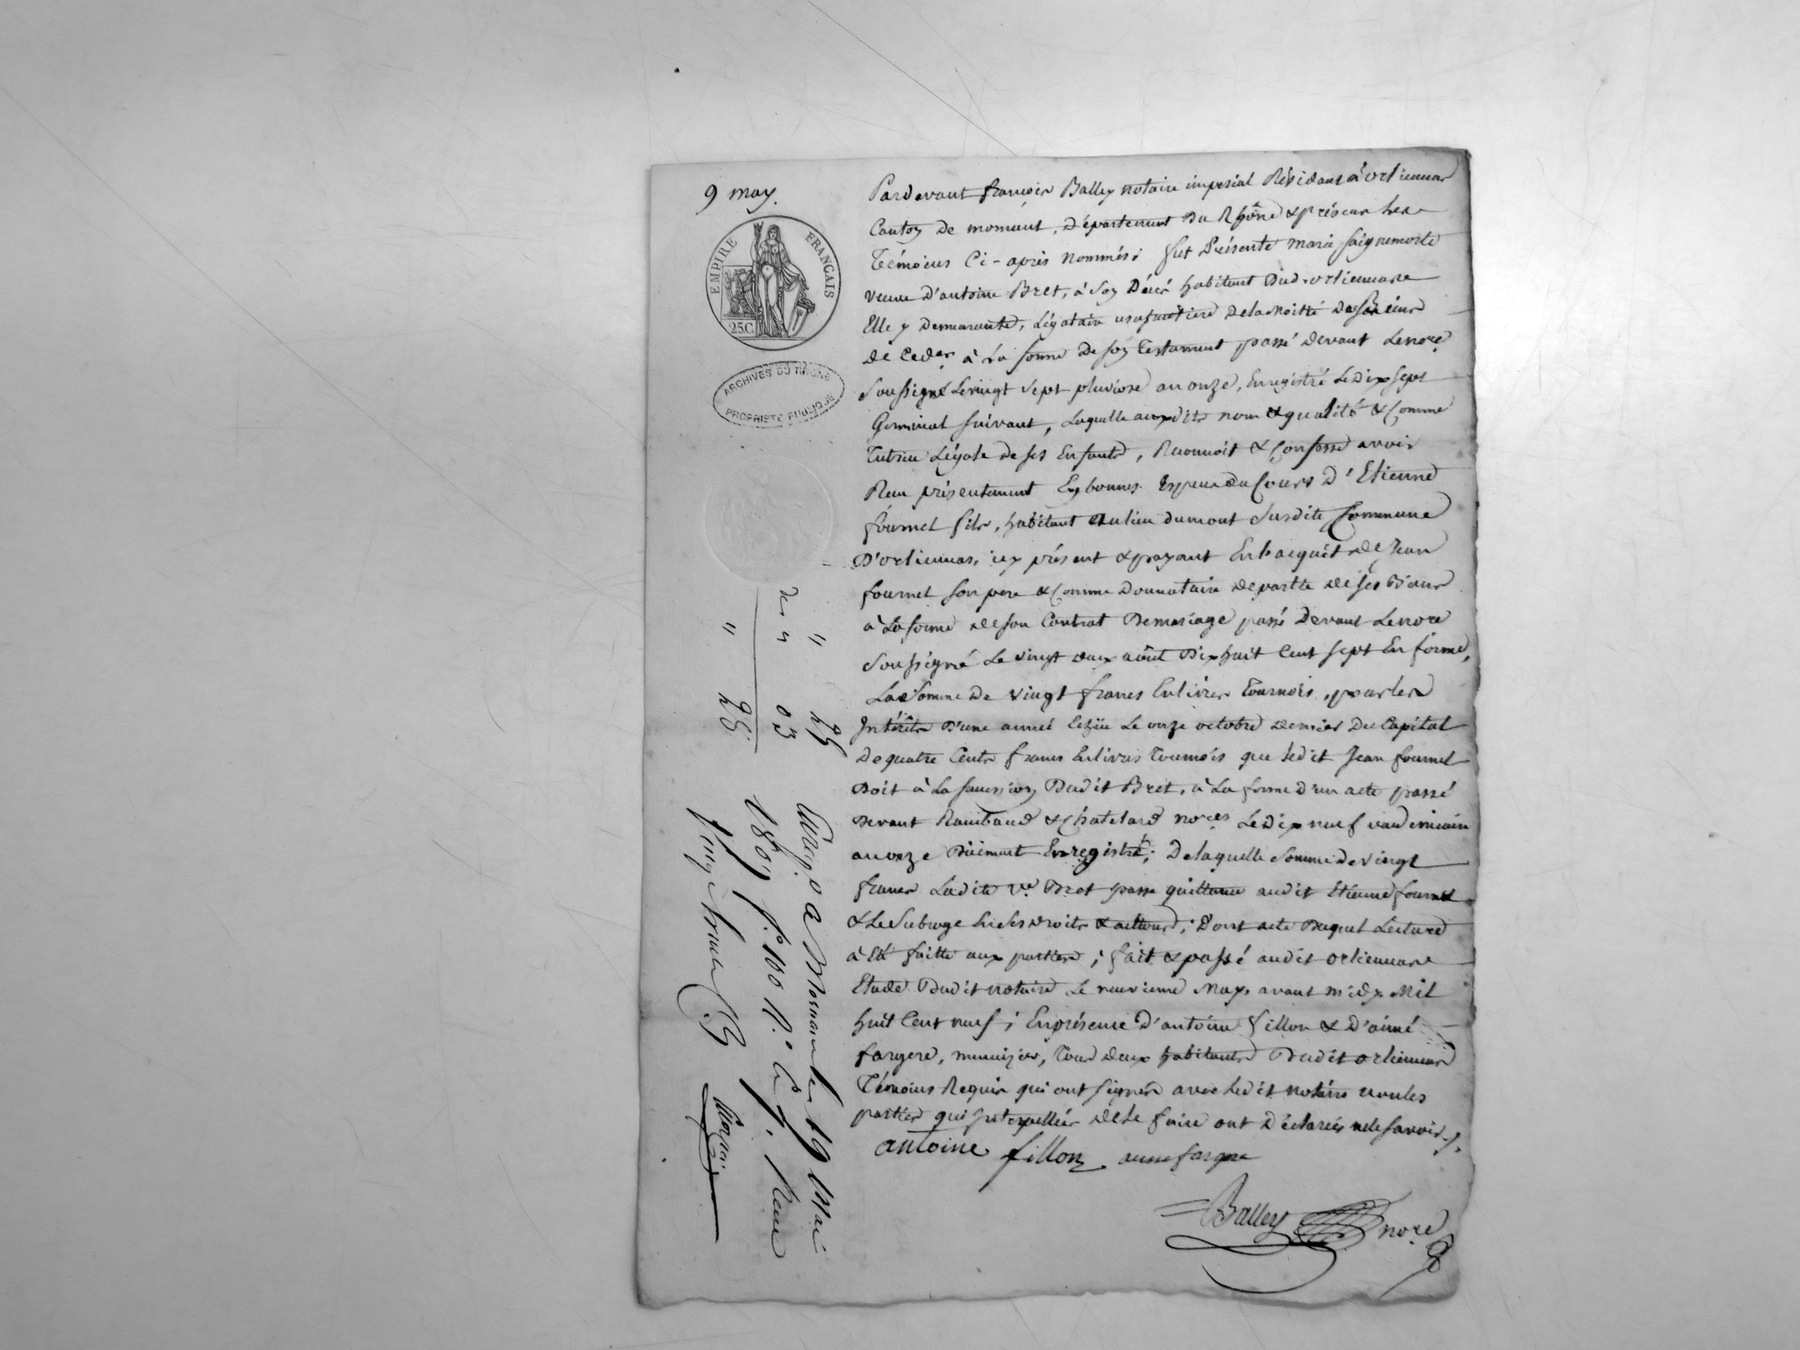 9 may.
EMPIRE FRANÇAIS
25C.
ARCHIVES DU RHÔNE
PROPRIÉTÉ PUBLIQUE
Pardevant françois Balley notaire imperial Résidant à orliennas
Canton de mornant, département Du Rhône & présence des
Témoins Ci-après nommés; fut Présente marie
veuve d'antoine Bret, à son Décès habitant Dud. orliennas
Elle y demeurante, Légataire usufruitiere de la moitié des biens
de Ceder à La forme de son Testament passé devant Le no.re
Soussigné Le vingt sept pluviose an onze, Enregistré Le dix sept
Germinal suivant, Laquelle auxdits nom & qualité & Comme
Tutrice Légale de ses Enfants, Reconnoit & Confesse avoir
Recu présentement En bonnes Especes du Cours d'Etienne
fournel fils, habitant au lieu du mont susdite Commune
D'orliennas, icy présent & payant En l'acquit de Jean
fournel son pere & Comme Donnataire de partie de ses Biens
à La forme de son Contrat De mariage passé Devant Le no.re
Soussigné Le vingt deux août Dix huit Cent sept En forme,
La Somme de vingt francs En livres Tournois, pour les
Intérêts D'une année Echüe Le onze octobre dernier Du Capital
De quatre Cents francs En livres Tournois que led.it Jean fournel
Doit à La succession Dudit Bret, à La forme d'un acte passé
Devant Raimbaud & Chatelard no.res Le dix neuf vendemiaire
an onze Düement Enregistré; De laquelle Somme de vingt
francs Ladite V.e Bret passe quittance audit Etienne fournel
& Le Subroge En Ses Droits & actions; Dont acte Duquel Lecture
à Eté faitte aux parties; fait & passé audit orliennas
Etude Dudit notaire Le neuvieme May avant midy Mil
huit Cent neuf; En présence d'antoine fillon & D'aimé
fargere, menuizier, Tous deux habitants Dudit orliennas
Témoins Requis qui ont signés avec Ledit notaire non les
parties qui Interpellées de Le faire ont Déclarées ne le savoir./.
antoine fillon aime fargere
Balley no.re
" 25
03
" 28
Enreg. à Mornant le 19 Mai
1809 f.o 100 R.o C. 7. Recu